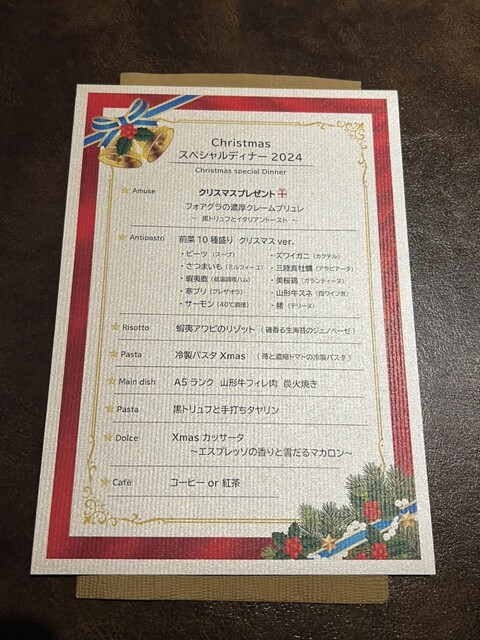 Christmas
スペシャルディナー 2024
Christmas special Dinner
Amuse クリスマスプレゼント
フォアグラの濃厚クレームブリュレ
～ 黒トリュフとイタリアントースト ～
Antipasto 前菜10種盛り クリスマス ver.
・ビーツ（スープ） ・ズワイガニ（カクテル）
・さつまいも（ミルフィーユ） ・三陸真牡蠣（アラビアータ）
・蝦夷鹿（低温調理ハム） ・美桜鶏（ガランティーヌ）
・寒ブリ（ブレザオラ） ・山形牛スネ（白ワイン煮）
・サーモン（40℃調理）
Risotto 蝦夷アワビのリゾット （磯香る生海苔のジェノベーゼ）
Pasta 冷製パスタ Xmas （苺と濃縮トマトの冷製パスタ）
Main dish A5ランク 山形牛フィレ肉 炭火焼き
Pasta 黒トリュフと手打ちタヤリン
Dolce Xmas カッサータ
～エスプレッソの香りと雪だるマカロン～
Cafè コーヒー or 紅茶